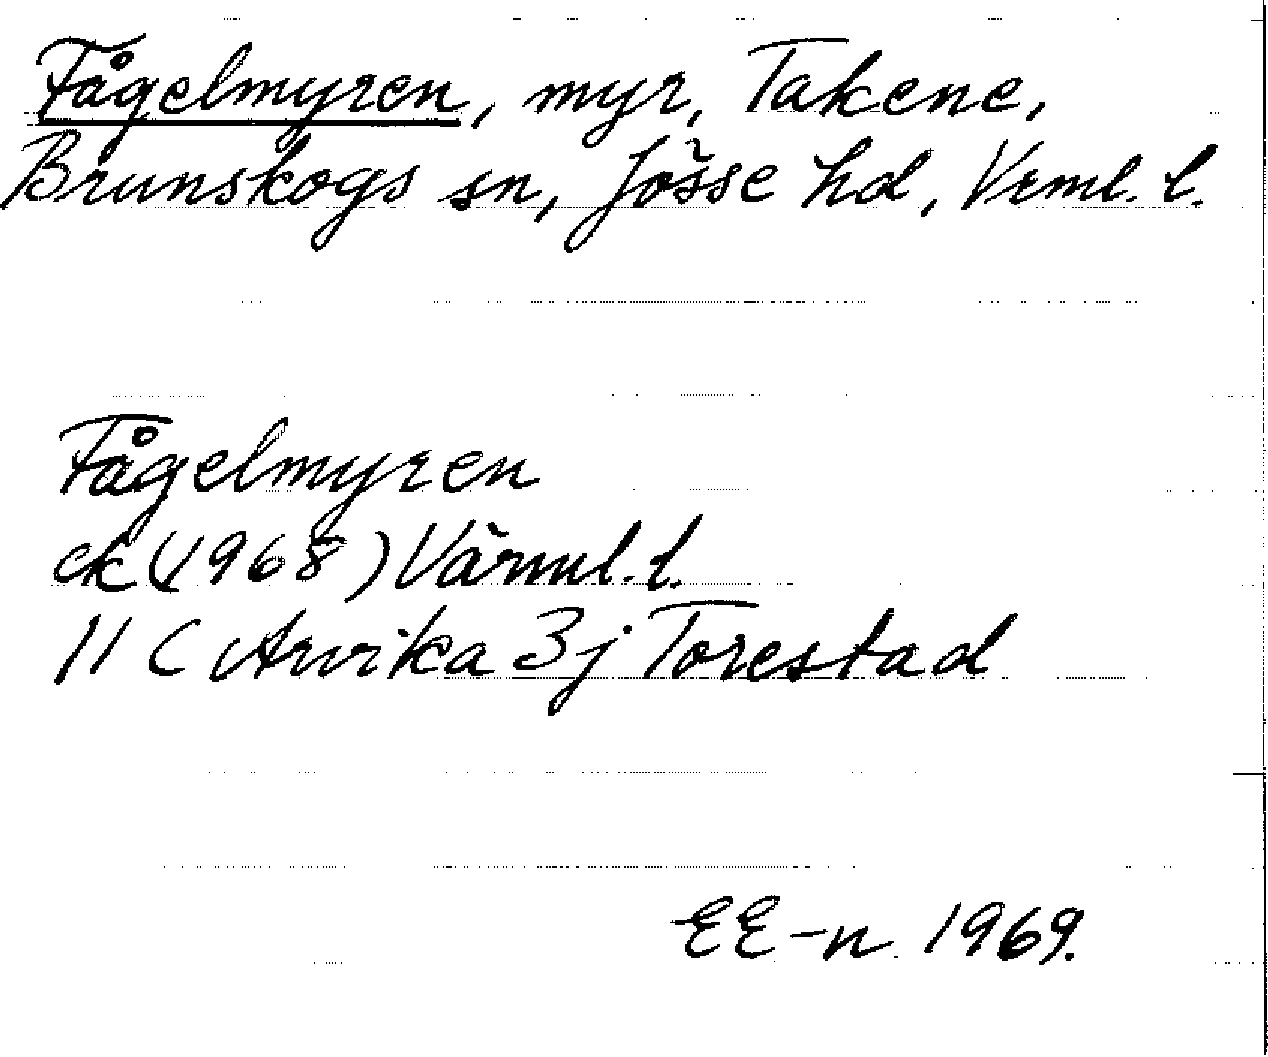 Fågelmyren, myr, Takene,
Brunskogs sn, Jösse hd, Vrml. l.
Fågelmyren
ek (1968) Värml. l.
11 C Arvika 3j Torestad
EE-n 1969.